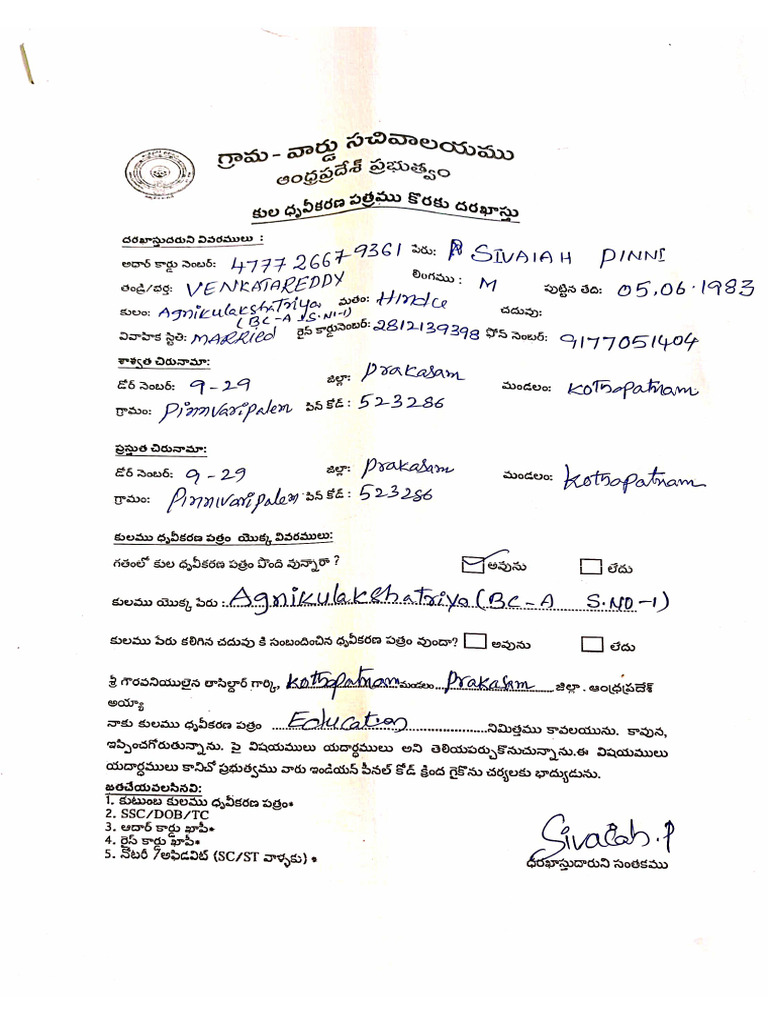 గ్రామ - వార్డు సచివాలయము
ఆంధ్రప్రదేశ్ ప్రభుత్వం
కుల ధృవీకరణ పత్రము కొరకు దరఖాస్తు
దరఖాస్తుదారుని వివరములు :
అదార్ కార్డు నెంబర్: 4777 2667 9361 పేరు: SIVAIAH PINNI
తండ్రి/భర్త: VENKATAREDDY లింగము : M పుట్టిన తేది: 05.06.1983
కులం: Agnikulakshatriya (BC-A S.N1-1) మతం: Hindu చదువు:
వివాహిక స్థితి: MARRIED రైస్ కార్డునెంబర్: 2812139398 ఫోన్ నెంబర్: 9177051404
శాశ్వత చిరునామా:
డోర్ నెంబర్: 9-29 జిల్లా: Prakasam మండలం: Kothapatnam
గ్రామం: Pinnivaripalem పిన్ కోడ్ : 523286
ప్రస్తుత చిరునామా:
డోర్ నెంబర్: 9-29 జిల్లా: Prakasam మండలం: Kothapatnam
గ్రామం: Pinnivaripalem పిన్ కోడ్ : 523286
కులము ధృవీకరణ పత్రం యొక్క వివరములు:
గతంలో కుల ధృవీకరణ పత్రం పొంది వున్నారా ? అవును లేదు
కులము యొక్క పేరు : Agnikulakshatriya (BC-A S.NO-1)
కులము పేరు కలిగిన చదువు కి సంబందించిన ధృవీకరణ పత్రం వుందా? అవును లేదు
శ్రీ గౌరవనియులైన తాసిల్దార్ గార్కి, Kothapatnam మండలం Prakasam జిల్లా . ఆంధ్రప్రదేశ్
అయ్యా
నాకు కులము ధృవీకరణ పత్రం Education నిమిత్తము కావలయును. కావున,
ఇప్పించగోరుతున్నాను. పై విషయములు యదార్థములు అని తెలియపర్చుకొనుచున్నాను.ఈ విషయములు
యదార్థములు కానిచో ప్రభుత్వము వారు ఇండియన్ పీనల్ కోడ్ క్రింద గైకొను చర్యలకు భాద్యుడును.
జతచేయవలసినవి:
1. కుటుంబ కులము ధృవీకరణ పత్రం
2. SSC/DOB/TC
3. ఆదార్ కార్డు ఖాపీ
4. రైస్ కార్డు ఖాపీ
5. నోటరీ /అఫిడవిట్ (SC/ST వాళ్ళకు)
Sivaiah.P
ధరఖాస్తుదారుని సంతకము